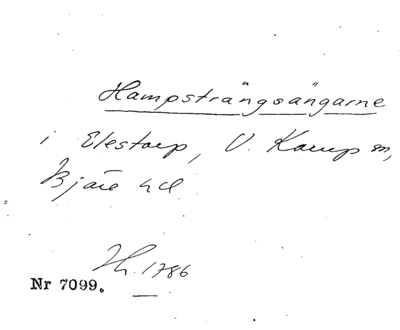 Hampsträngsängarne
i Elestorp, V. Karup sn,
Bjäre hd
Th. 1786
Nr 7099.